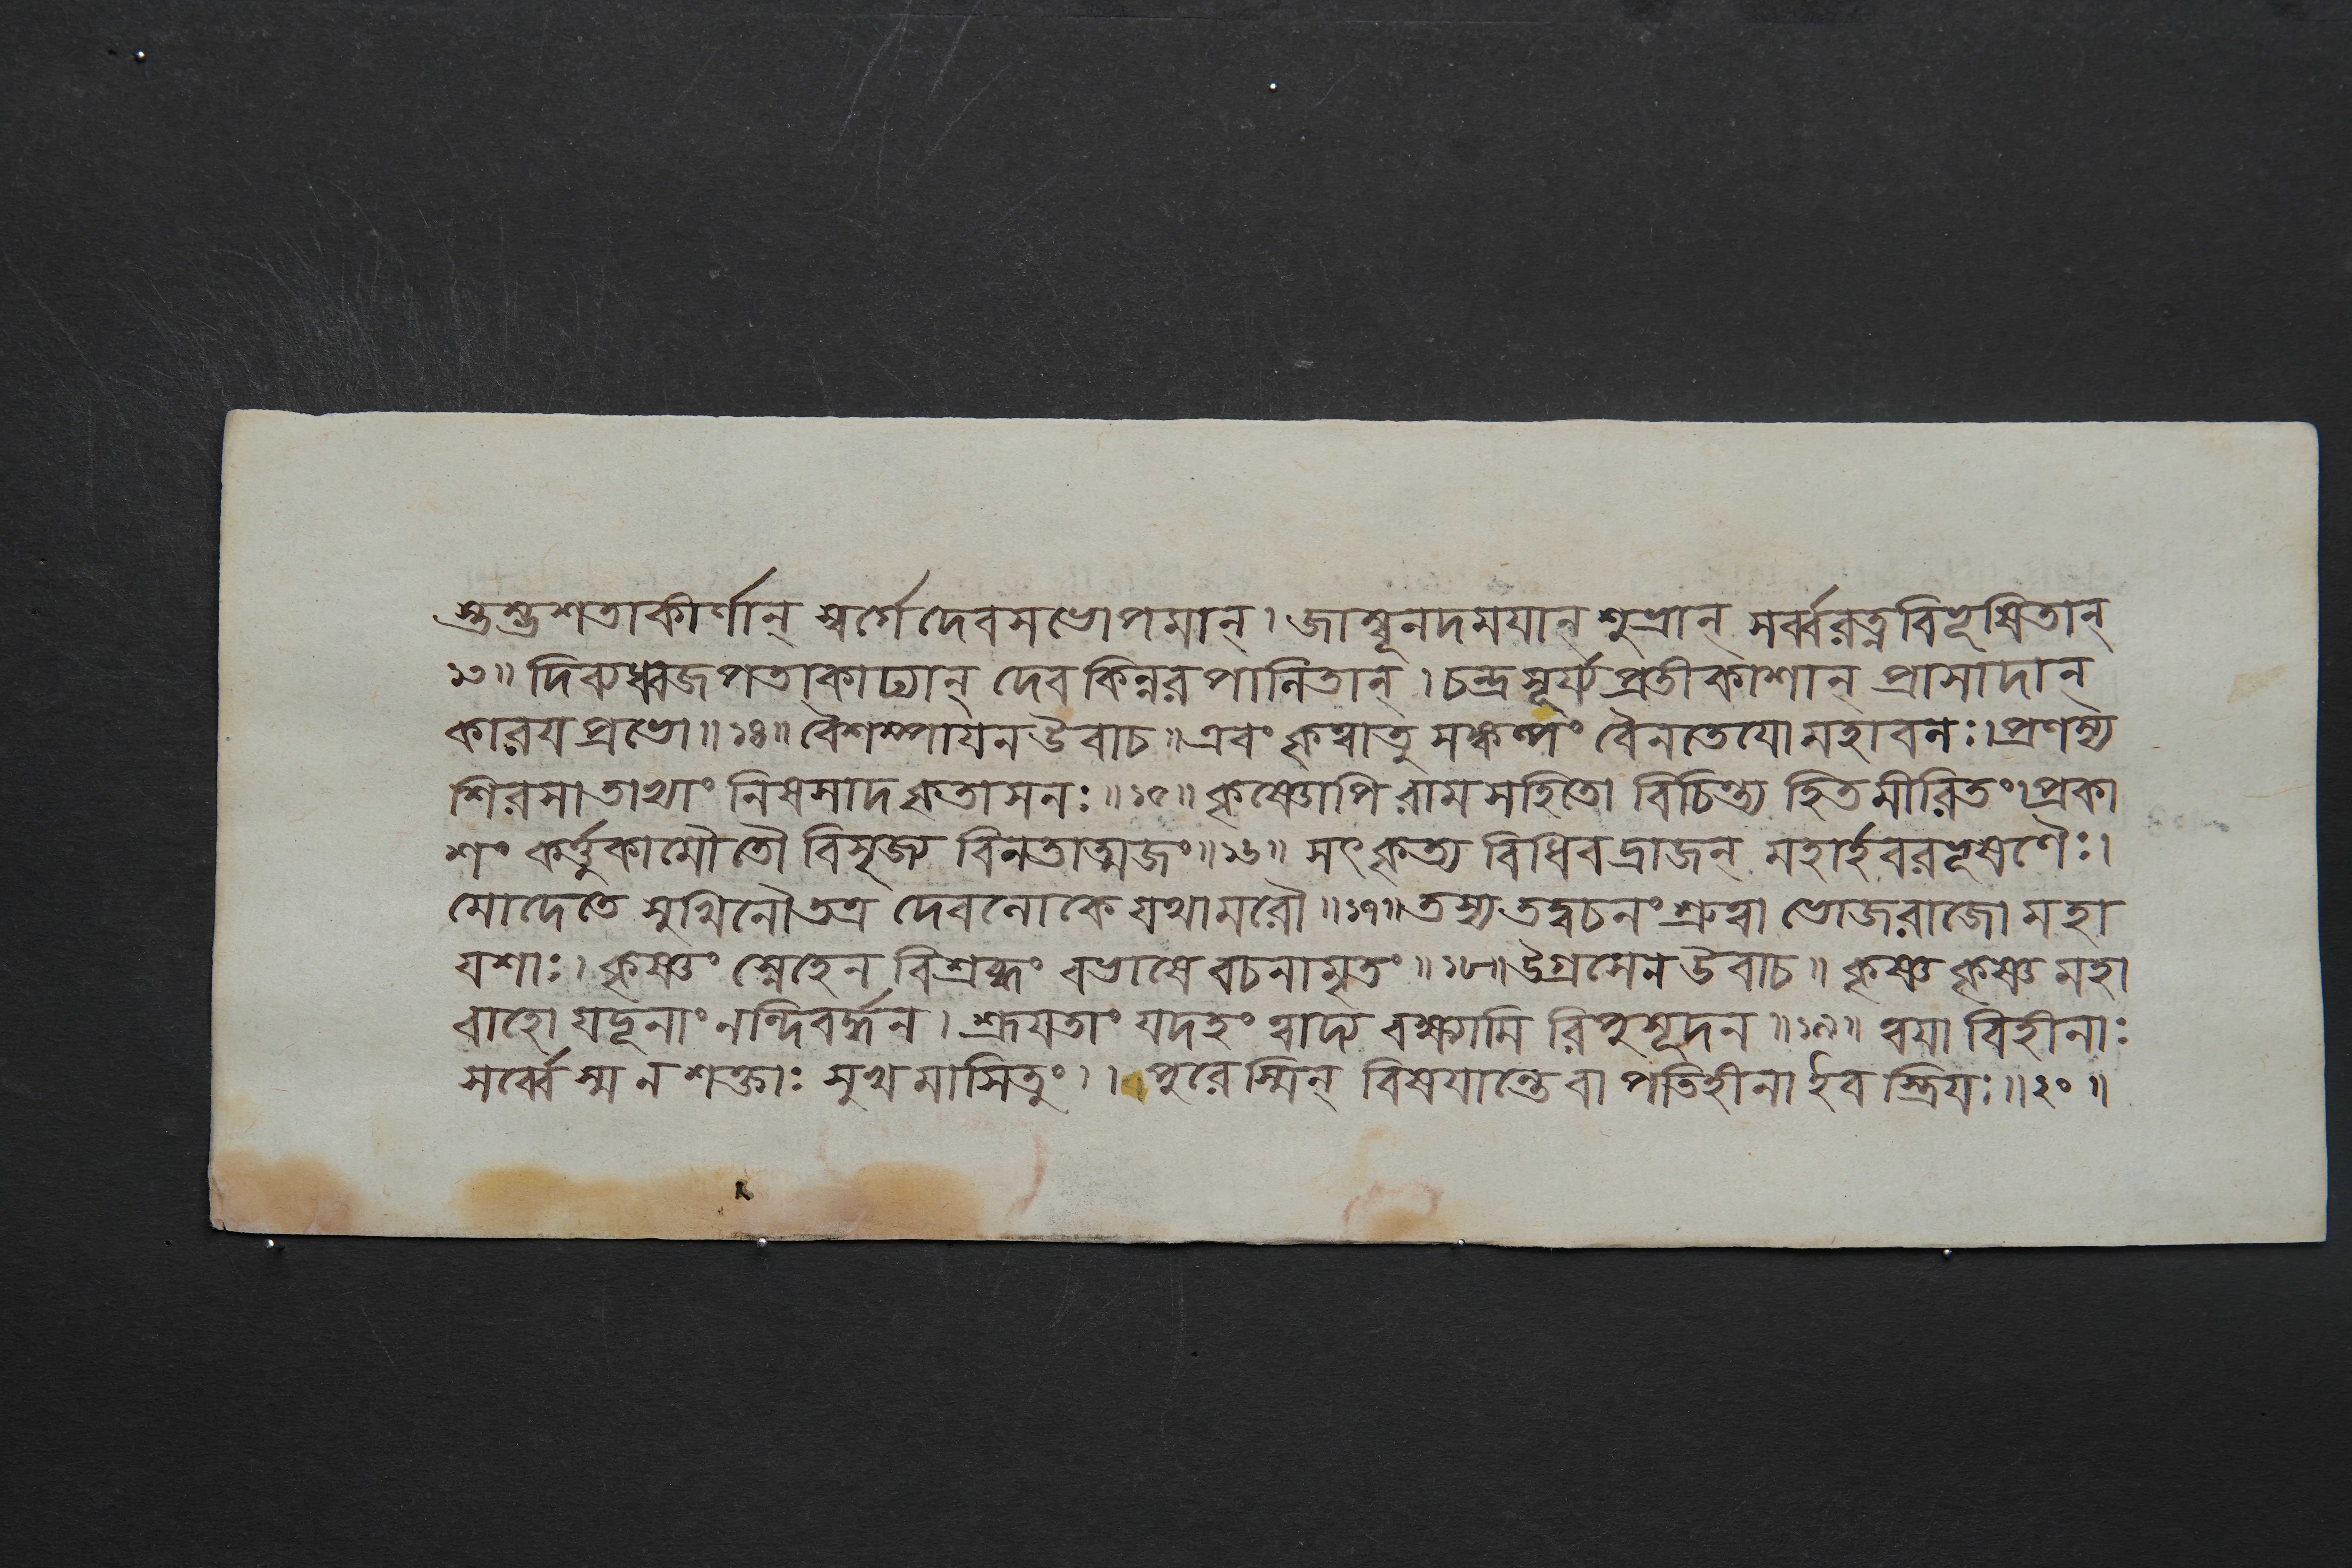 স্তম্ভশতাকীর্ণান্ স্বর্গে দেবসভোপমান্। জাম্বূনদময়ান্ শুভ্রান্ সর্ব্বরত্নবিভূষিতান্
১৩॥ দিব্যধ্বজপতাকাঢ্যান্ দেবকিন্নরপালিতান্। চন্দ্রসূর্য্যপ্রতীকাশান্ প্রাসাদান্
কারয প্রভো॥১৪॥ বৈশম্পাযন উবাচ॥ এবং কৃত্বাতু সঙ্কল্পং বৈনতেযো মহাবলঃ। প্রণম্য
শিরসা তাভ্যাং নিষসাদ কৃতাসনঃ॥১৫॥ কৃষ্ণোপি রামসহিতো বিচিন্ত্য হিতমীরিতং। প্রকা
শং কর্ত্তুকামৌ তৌ বিসৃজ্য বিনতাত্মজং॥১৬॥ সৎকৃত্য বিধিবদ্রাজন্ মহার্হবরভূষণৈঃ।
মোদেতে সুখিনৌ তত্র দেবলোকে যথামরৌ॥১৭॥ তস্য তদ্বচনং শ্রুত্বা ভোজরাজো মহা
যশাঃ। কৃষ্ণং স্নেহেন বিশ্রব্ধং বভাষে বচনামৃতং॥১৮॥ উগ্রসেন উবাচ॥ কৃষ্ণ কৃষ্ণ মহা
বাহো যদূনাং নন্দিবর্দ্ধন। শ্রূযতাং যদহং ত্বাদ্য বক্ষ্যামি রিপুসূদন॥১৯॥ ত্বযা বিহীনাঃ
সর্ব্বে স্ম ন শক্তাঃ সুখমাসিতুং।। পুরেস্মিন্ বিষযান্তে বা পতিহীনা ইব স্ত্রিযঃ॥২০॥